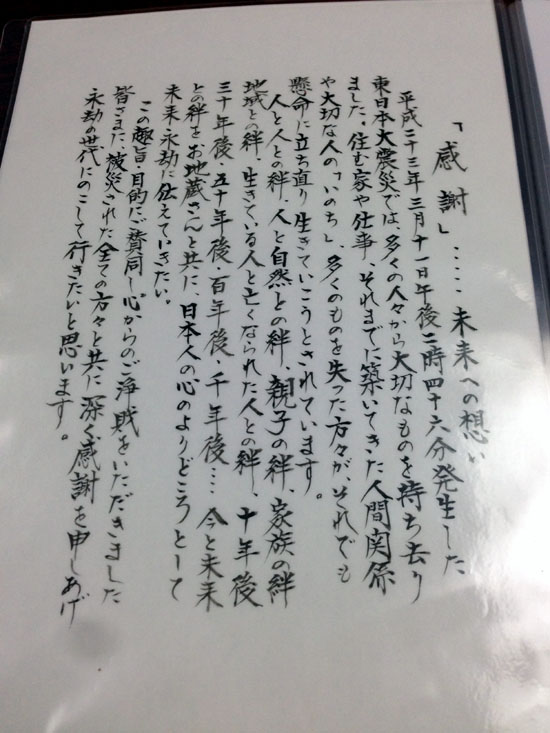 「感謝」‥‥‥未来への想い
平成二十三年三月十一日午後二時四十六分発生した
東日本大震災では、多くの人々から大切なものを持ち去り
ました。住む家や仕事、それまでに築いてきた人間関係
や大切な人の「いのち」、多くのものを失った方々が、それでも
懸命に立ち直り生きていこうとされています。
人と人との絆、人と自然との絆、親子の絆、家族の絆
地域との絆、生きている人と亡くなられた人との絆、十年後
三十年後・五十年後・百年後・千年後‥‥今と未来
との絆をお地蔵さんと共に、日本人の心のよりどころとして
未来永劫に伝えていきたい。
この趣旨・目的にご賛同し心からのご浄財をいただきました
皆さまに、被災された全ての方々と共に深く感謝を申しあげ
永劫の世代にのこして行きたいと思います。